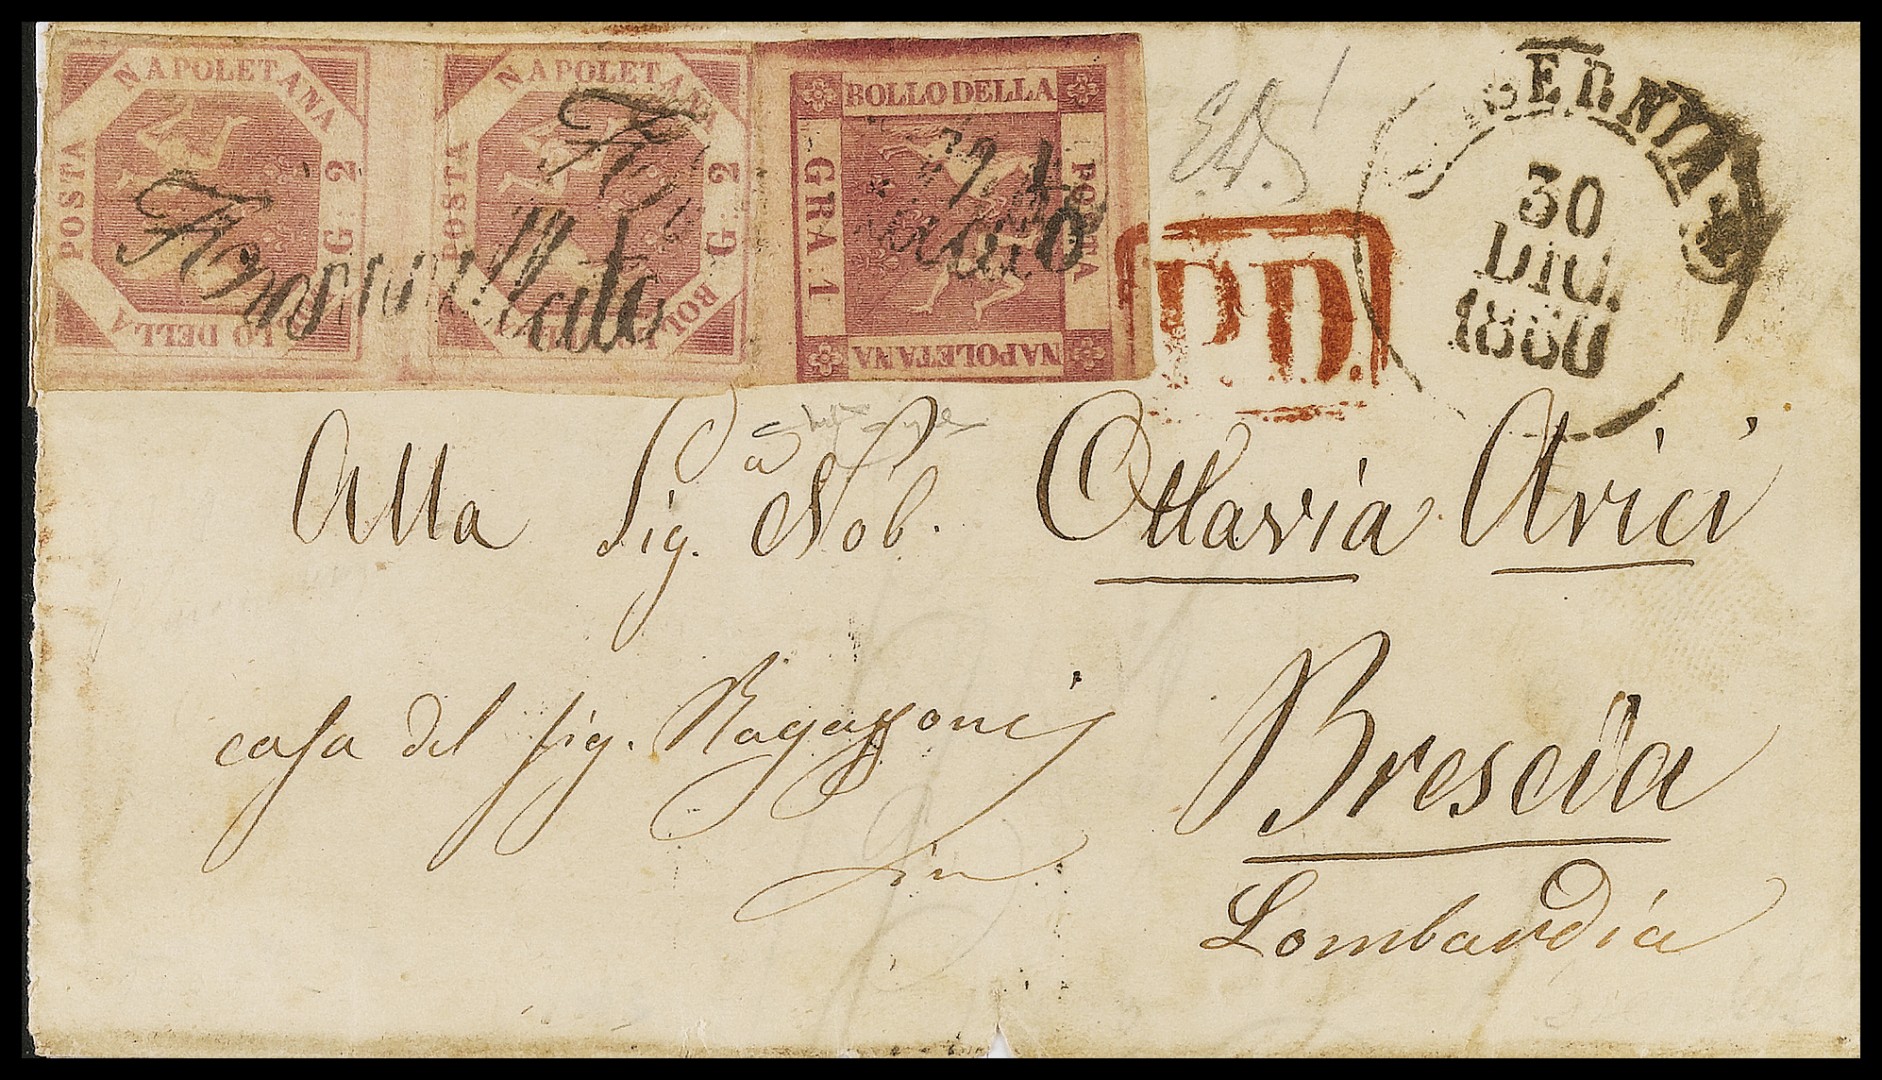 BOLLO DELLA POSTA NAPOLETANA G. 2
BOLLO DELLA POSTA NAPOLETANA G. 2
BOLLO DELLA POSTA NAPOLETANA GRA 1
Annullato
P.D.
SERNIA
30
DIC.
1860
Alla Sig.a Nob. Ottavia Arici
casa del sig. Ragazzoni
in
Brescia
Lombardia